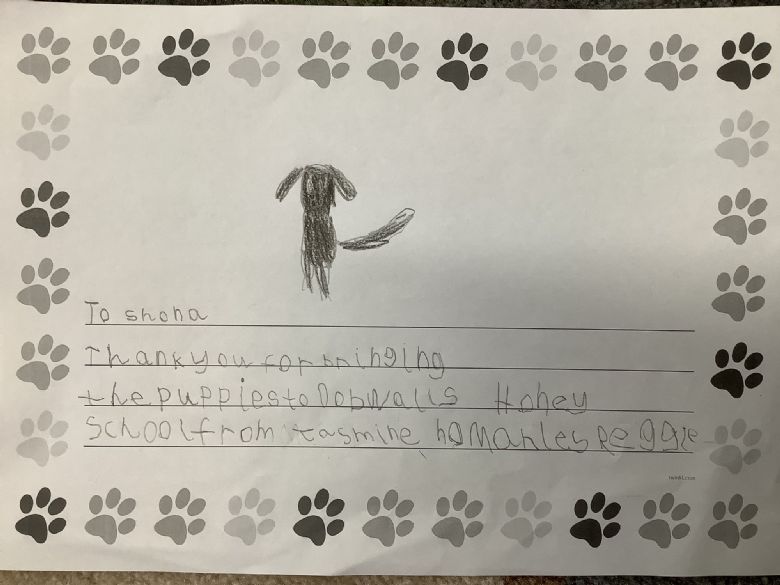 To shona
Thank you for bringing
the puppies to Dobwalls Honey
School from tasmine Reggie
twinkl.com